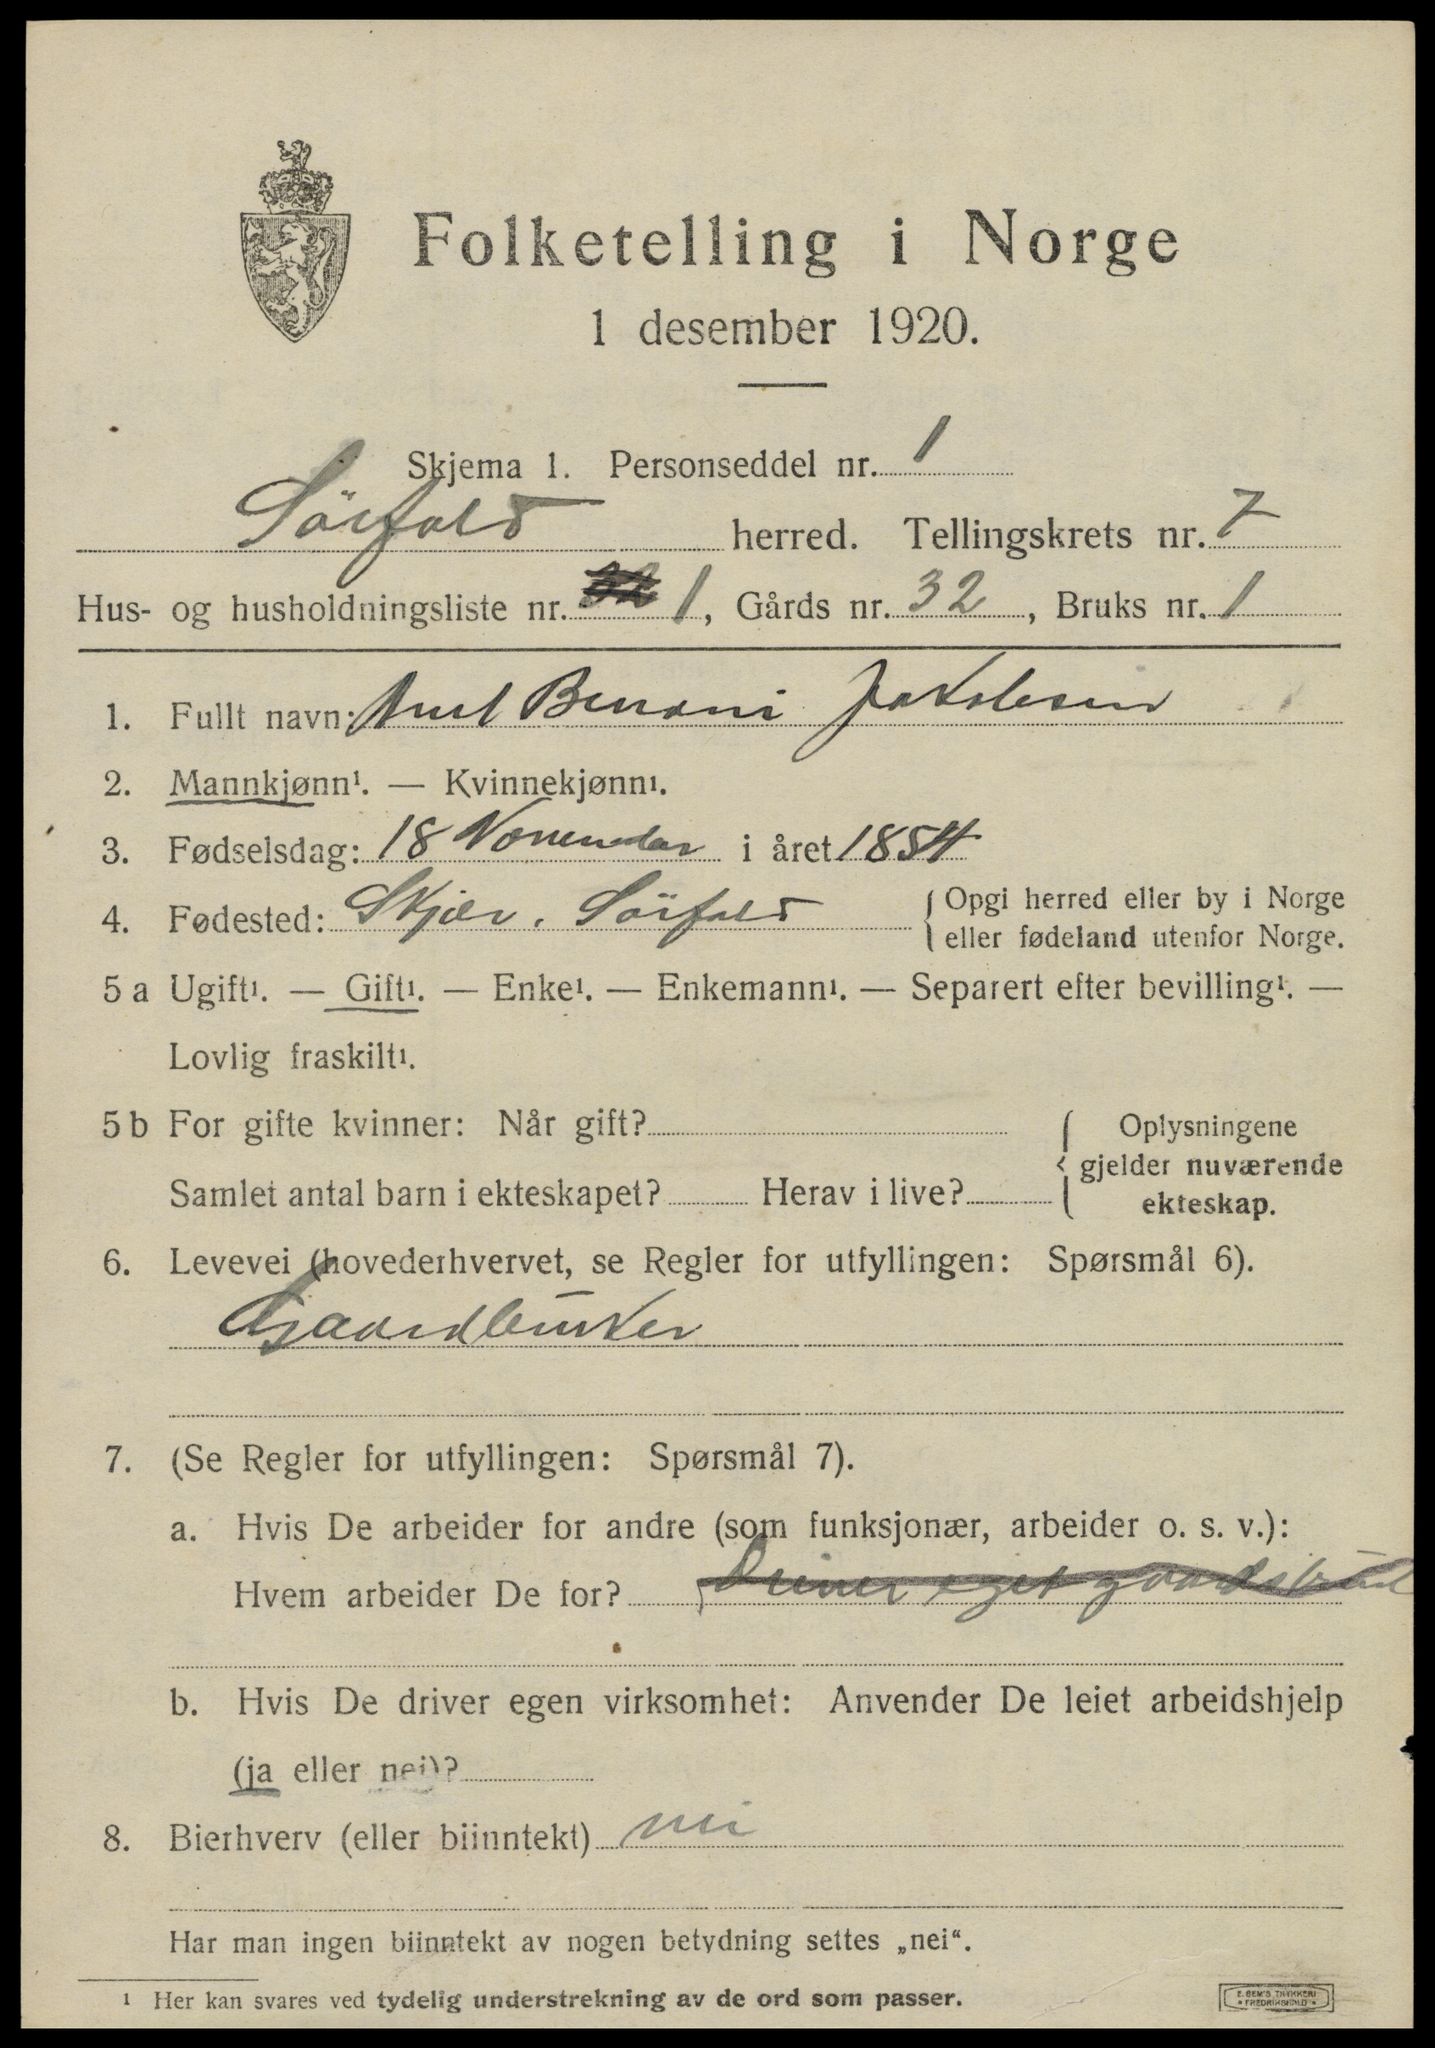 Folketelling i Norge
1 desember 1920.
Skjema 1. Personseddel nr. 1
Sörfold herred. Tellingskrets nr. 7
Hus- og husholdningsliste nr. 32 1, Gårds nr. 32, Bruks nr. 1
1. Fullt navn: Benoni Jakobsen
2. Mannkjønn¹. — Kvinnekjønn¹.
3. Fødselsdag: 18 November i året 1854
4. Fødested: Skjær, Sörfold { Opgi herred eller by i Norge
eller fødeland utenfor Norge.
5 a Ugift¹. — Gift¹. — Enke¹. — Enkemann¹. — Separert efter bevilling¹. —
Lovlig fraskilt¹.
5 b For gifte kvinner: Når gift? { Oplysningene
gjelder nuværende
Samlet antal barn i ekteskapet? Herav i live? ekteskap.
6. Levevei (hovederhvervet, se Regler for utfyllingen: Spørsmål 6).
Gaardbruker
7. (Se Regler for utfyllingen: Spørsmål 7).
a. Hvis De arbeider for andre (som funksjonær, arbeider o. s. v.):
Hvem arbeider De for? Driver eget gaardsbruk
b. Hvis De driver egen virksomhet: Anvender De leiet arbeidshjelp
(ja eller nei)?
8. Bierhverv (eller biinntekt) nei
Har man ingen biinntekt av nogen betydning settes „nei“.
¹ Her kan svares ved tydelig understrekning av de ord som passer.
E. SEM'S TRYKKERI
* FREDRIKSHALD *